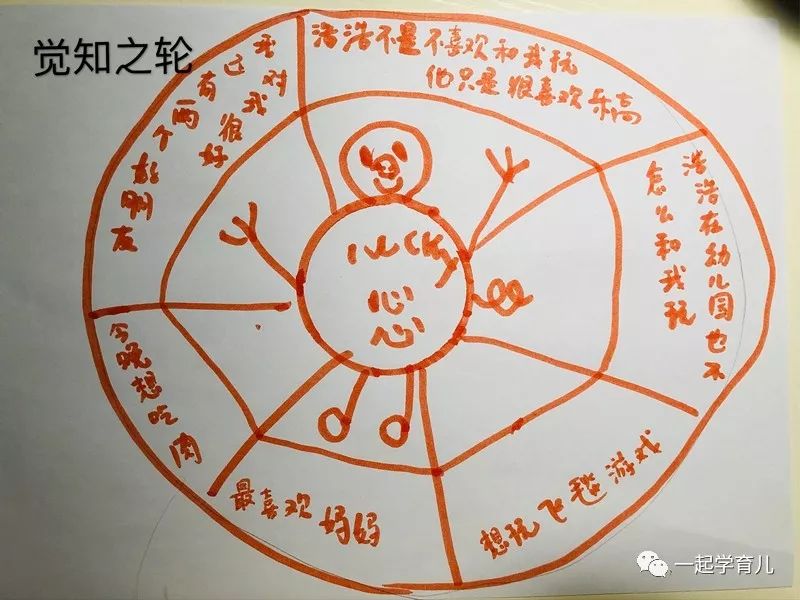 觉知之轮
浩浩不是不喜欢和我玩
他只是很喜欢乐高
浩浩在幼儿园也不
怎么和我玩
想玩飞毯游戏
最喜欢妈妈
今晚想吃肉
我对
这我很好
有两个好朋友
lucky
心心
一起学育儿